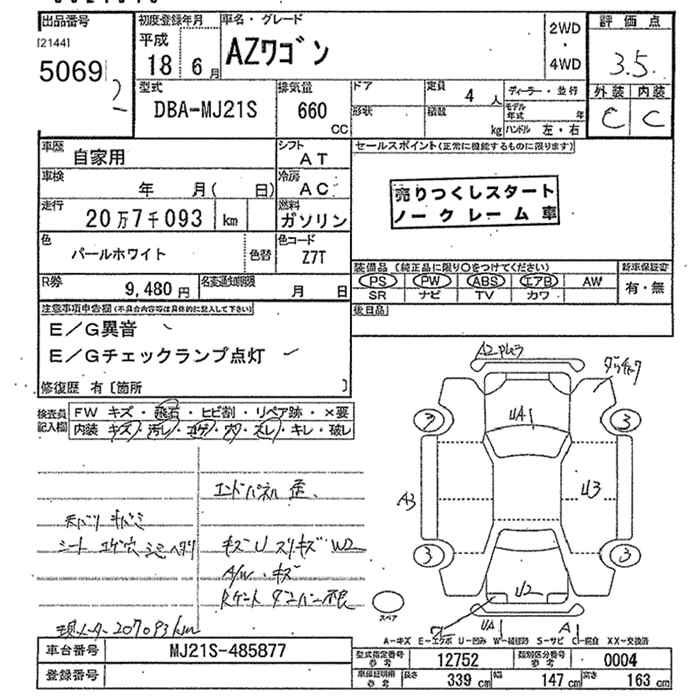 出品番号
[2144]
5069
2
初度登録年月
平成
18 6月
車名・グレード
AZワゴン
2WD
・
4WD
評価点
3.5
外装 内装
C C
型式
DBA-MJ21S
排気量
660
CC
ドア
形状
定員
4人
積数
kg
ディーラー・並行
モデル年式 年
ハンドル 左・右
車歴
自家用
シフト
AT
車検
年 月( 日)
冷房
AC
走行
20万7千093 km
燃料
ガソリン
色
パールホワイト
色替
色コード
Z7T
R券
9,480円
名変通知期限
月 日
セールスポイント(正常に機能するものに限ります)
売りつくしスタート
ノークレーム車
装備品(純正品に限り○をつけてください)
PS PW ABS エアB AW
SR ナビ TV カワ
新車保証書
有・無
後日品
注意事項申告欄(不具合内容等は具体的に記入して下さい)
E/G異音
E/Gチェックランプ点灯
修復歴 有〔箇所 〕
検査員
記入欄
FW キズ・飛石・ヒビ割・リペア跡・×要
内装 キズ・汚レ・コゲ・穴・スレ・キレ・破レ
エンドパネル 歪
シート コゲ穴 シミ ヘタリ
キズU スリキズ W2
A/W キズ
Rゲート ダンパー不良
現メーター207093km
A2
UA1
3
3
A3
U3
3
3
U2
UA1
A1
スペア
A-キズ E-エクボ U-凹み W-補修跡 S-サビ C-腐食 XX-交換済
車台番号
MJ21S-485877
登録番号
型式指定番号
参考
12752
類別区分番号
参考
0004
車庫証明用
参考
長さ
339 cm
幅
147 cm
高さ
163 cm